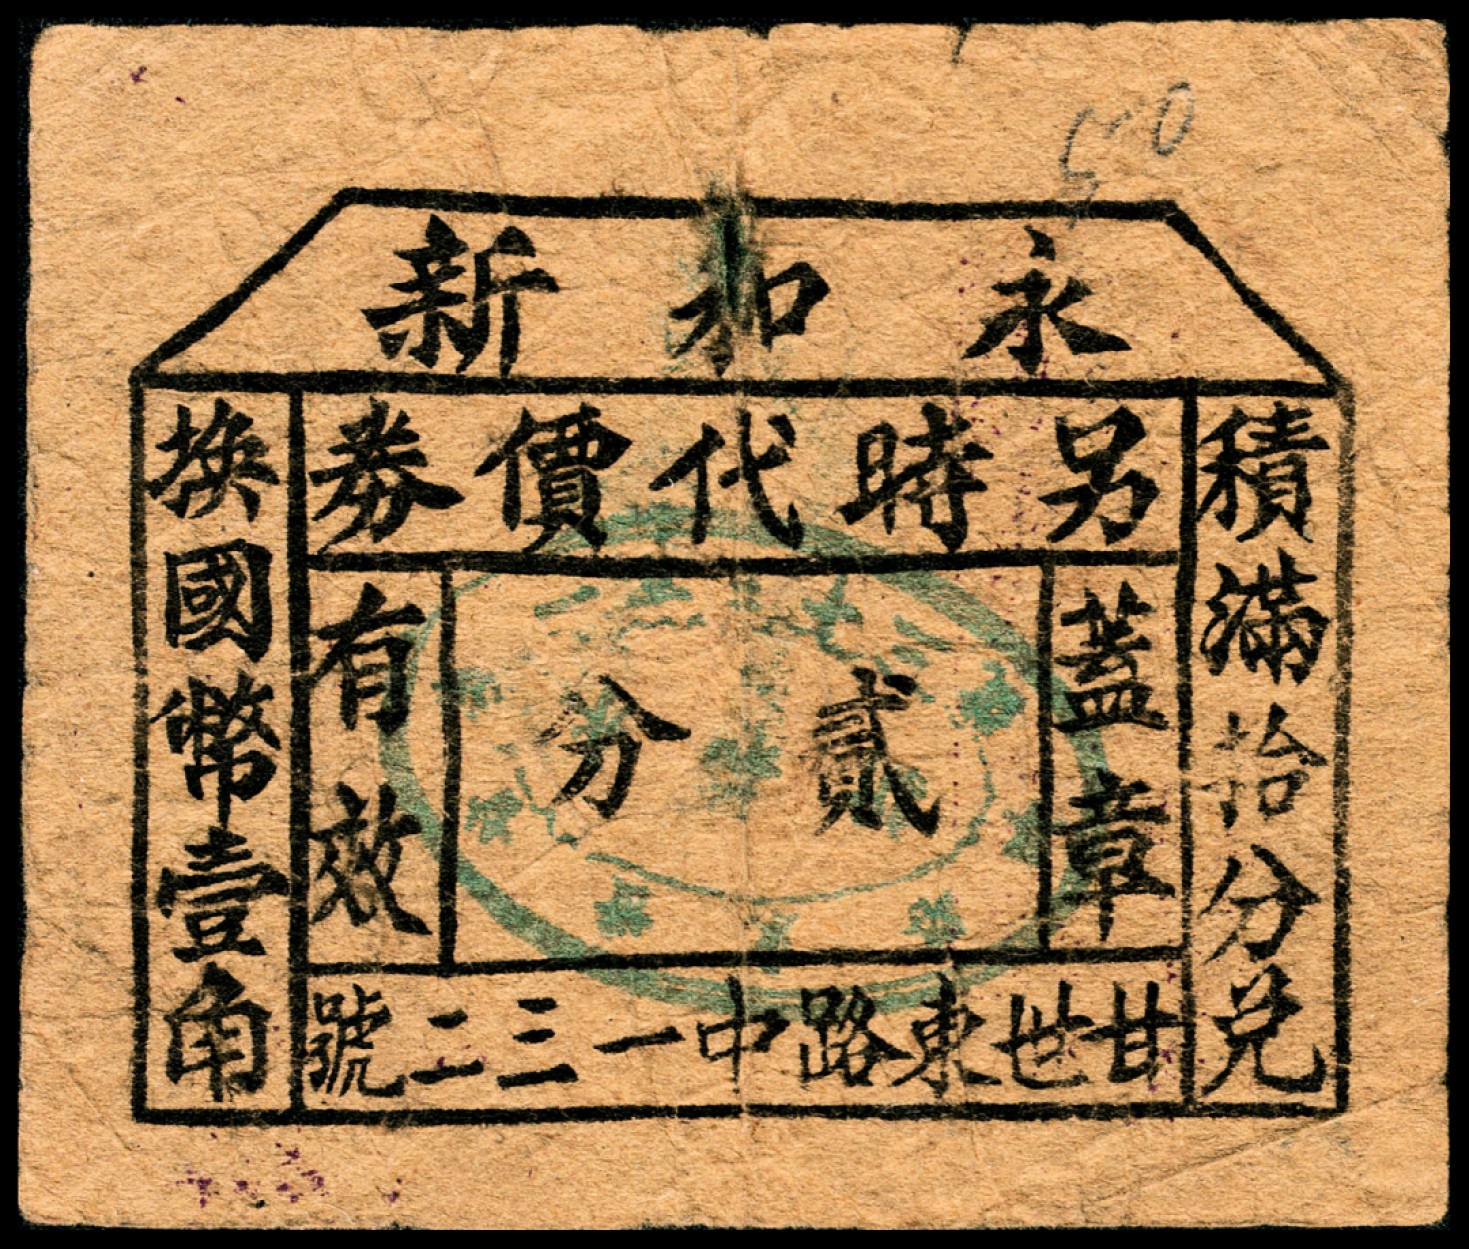 永和新
另時代價券
積滿拾分兌
換國幣壹角
蓋章
貳分
有效
甘世東路中一三二號